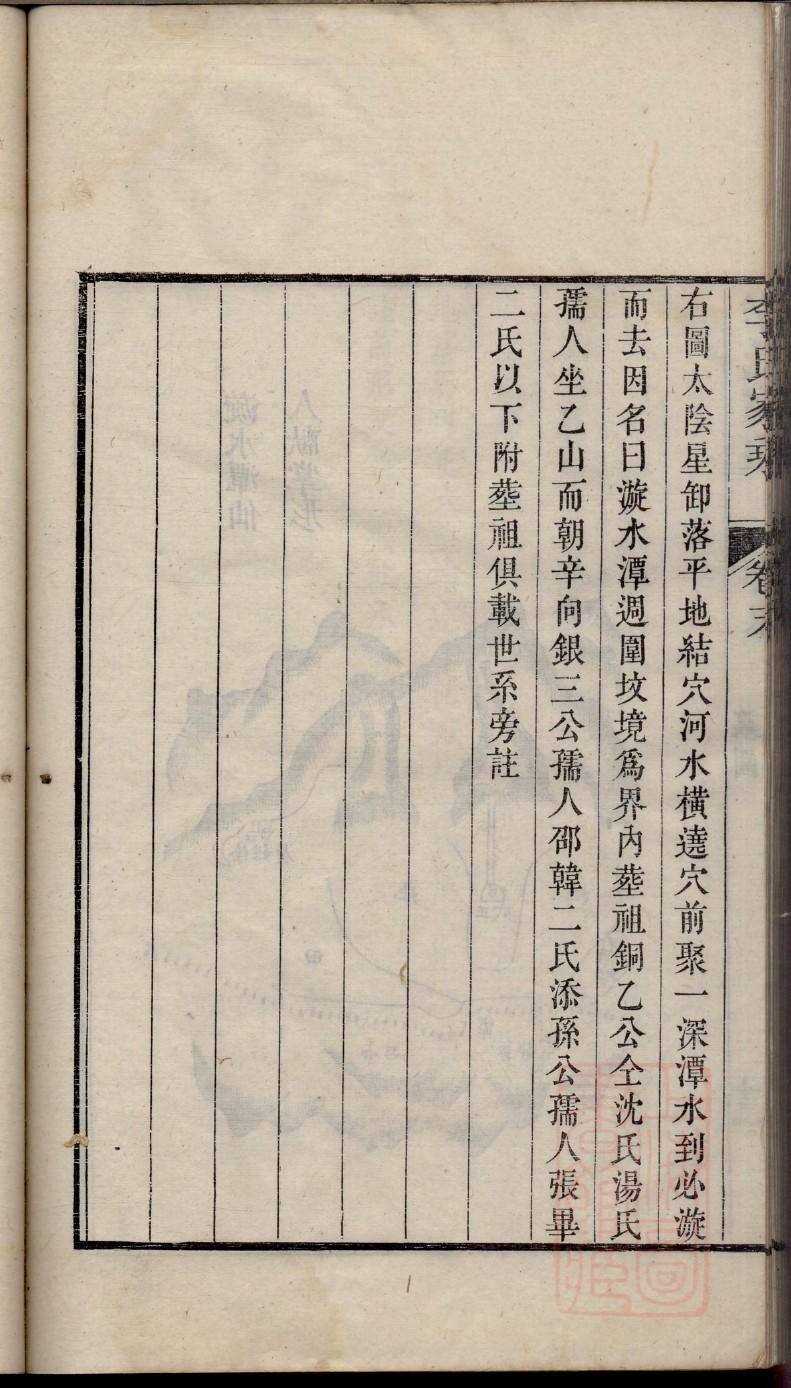 李氏家乘 卷末
右圖太陰星卸落平地結穴河水橫遶穴前聚一深潭水到必漩
而去因名曰漩水潭週圍坟境爲界內塟祖銅乙公仝沈氏湯氏
孺人坐乙山而朝辛向銀三公孺人邵韓二氏添孫公孺人張畢
二氏以下附塟祖俱載世系旁註